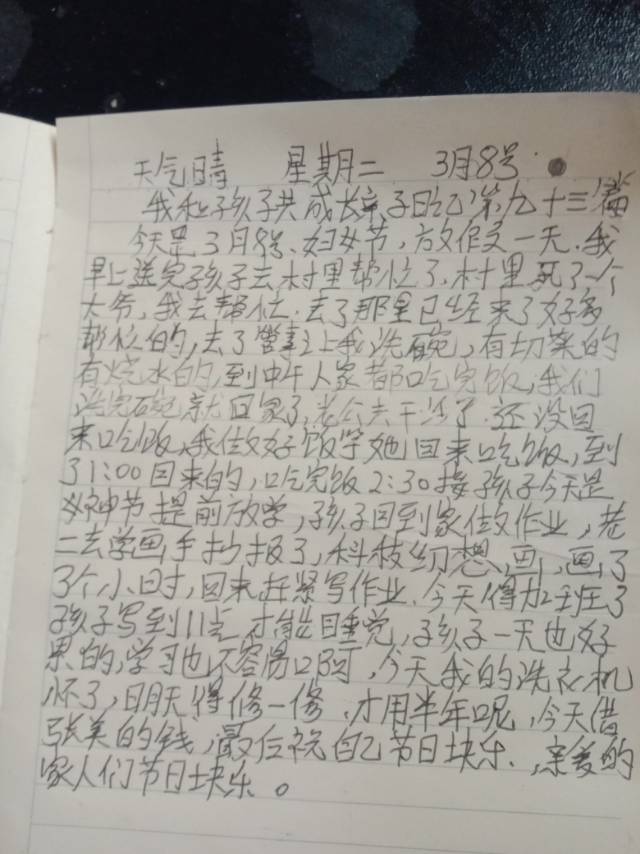 天气晴 星期二 3月8号
我和孩子共成长亲子日记第九十三篇
今天是3月8号、妇女节,放假一天.我
早上送完孩子去村里帮忙了.村里死了一个
大爷,我去帮忙.去了那里已经来了好多
帮忙的,去了管事让我洗碗,有切菜的
有烧水的,到中午人家都吃完饭,我们
洗完碗就回家了,老公去干活了.还没回
来吃饭,我做好饭等她回来吃饭,到
了1:00回来的,吃完饭2:30接孩子今天是
女神节提前放学,孩子回到家做作业,老
二去学画手抄报了,科技幻想画,画了
3个小时,回来赶紧写作业.今天得加班了
孩子写到11点才能睡觉,孩子一天也好
累的,学习也不容易啊,今天我的洗衣机
坏了,明天得修一修,才用半年呢,今天借
张美的钱,最后祝自己节日快乐.,亲爱的
家人们节日快乐。